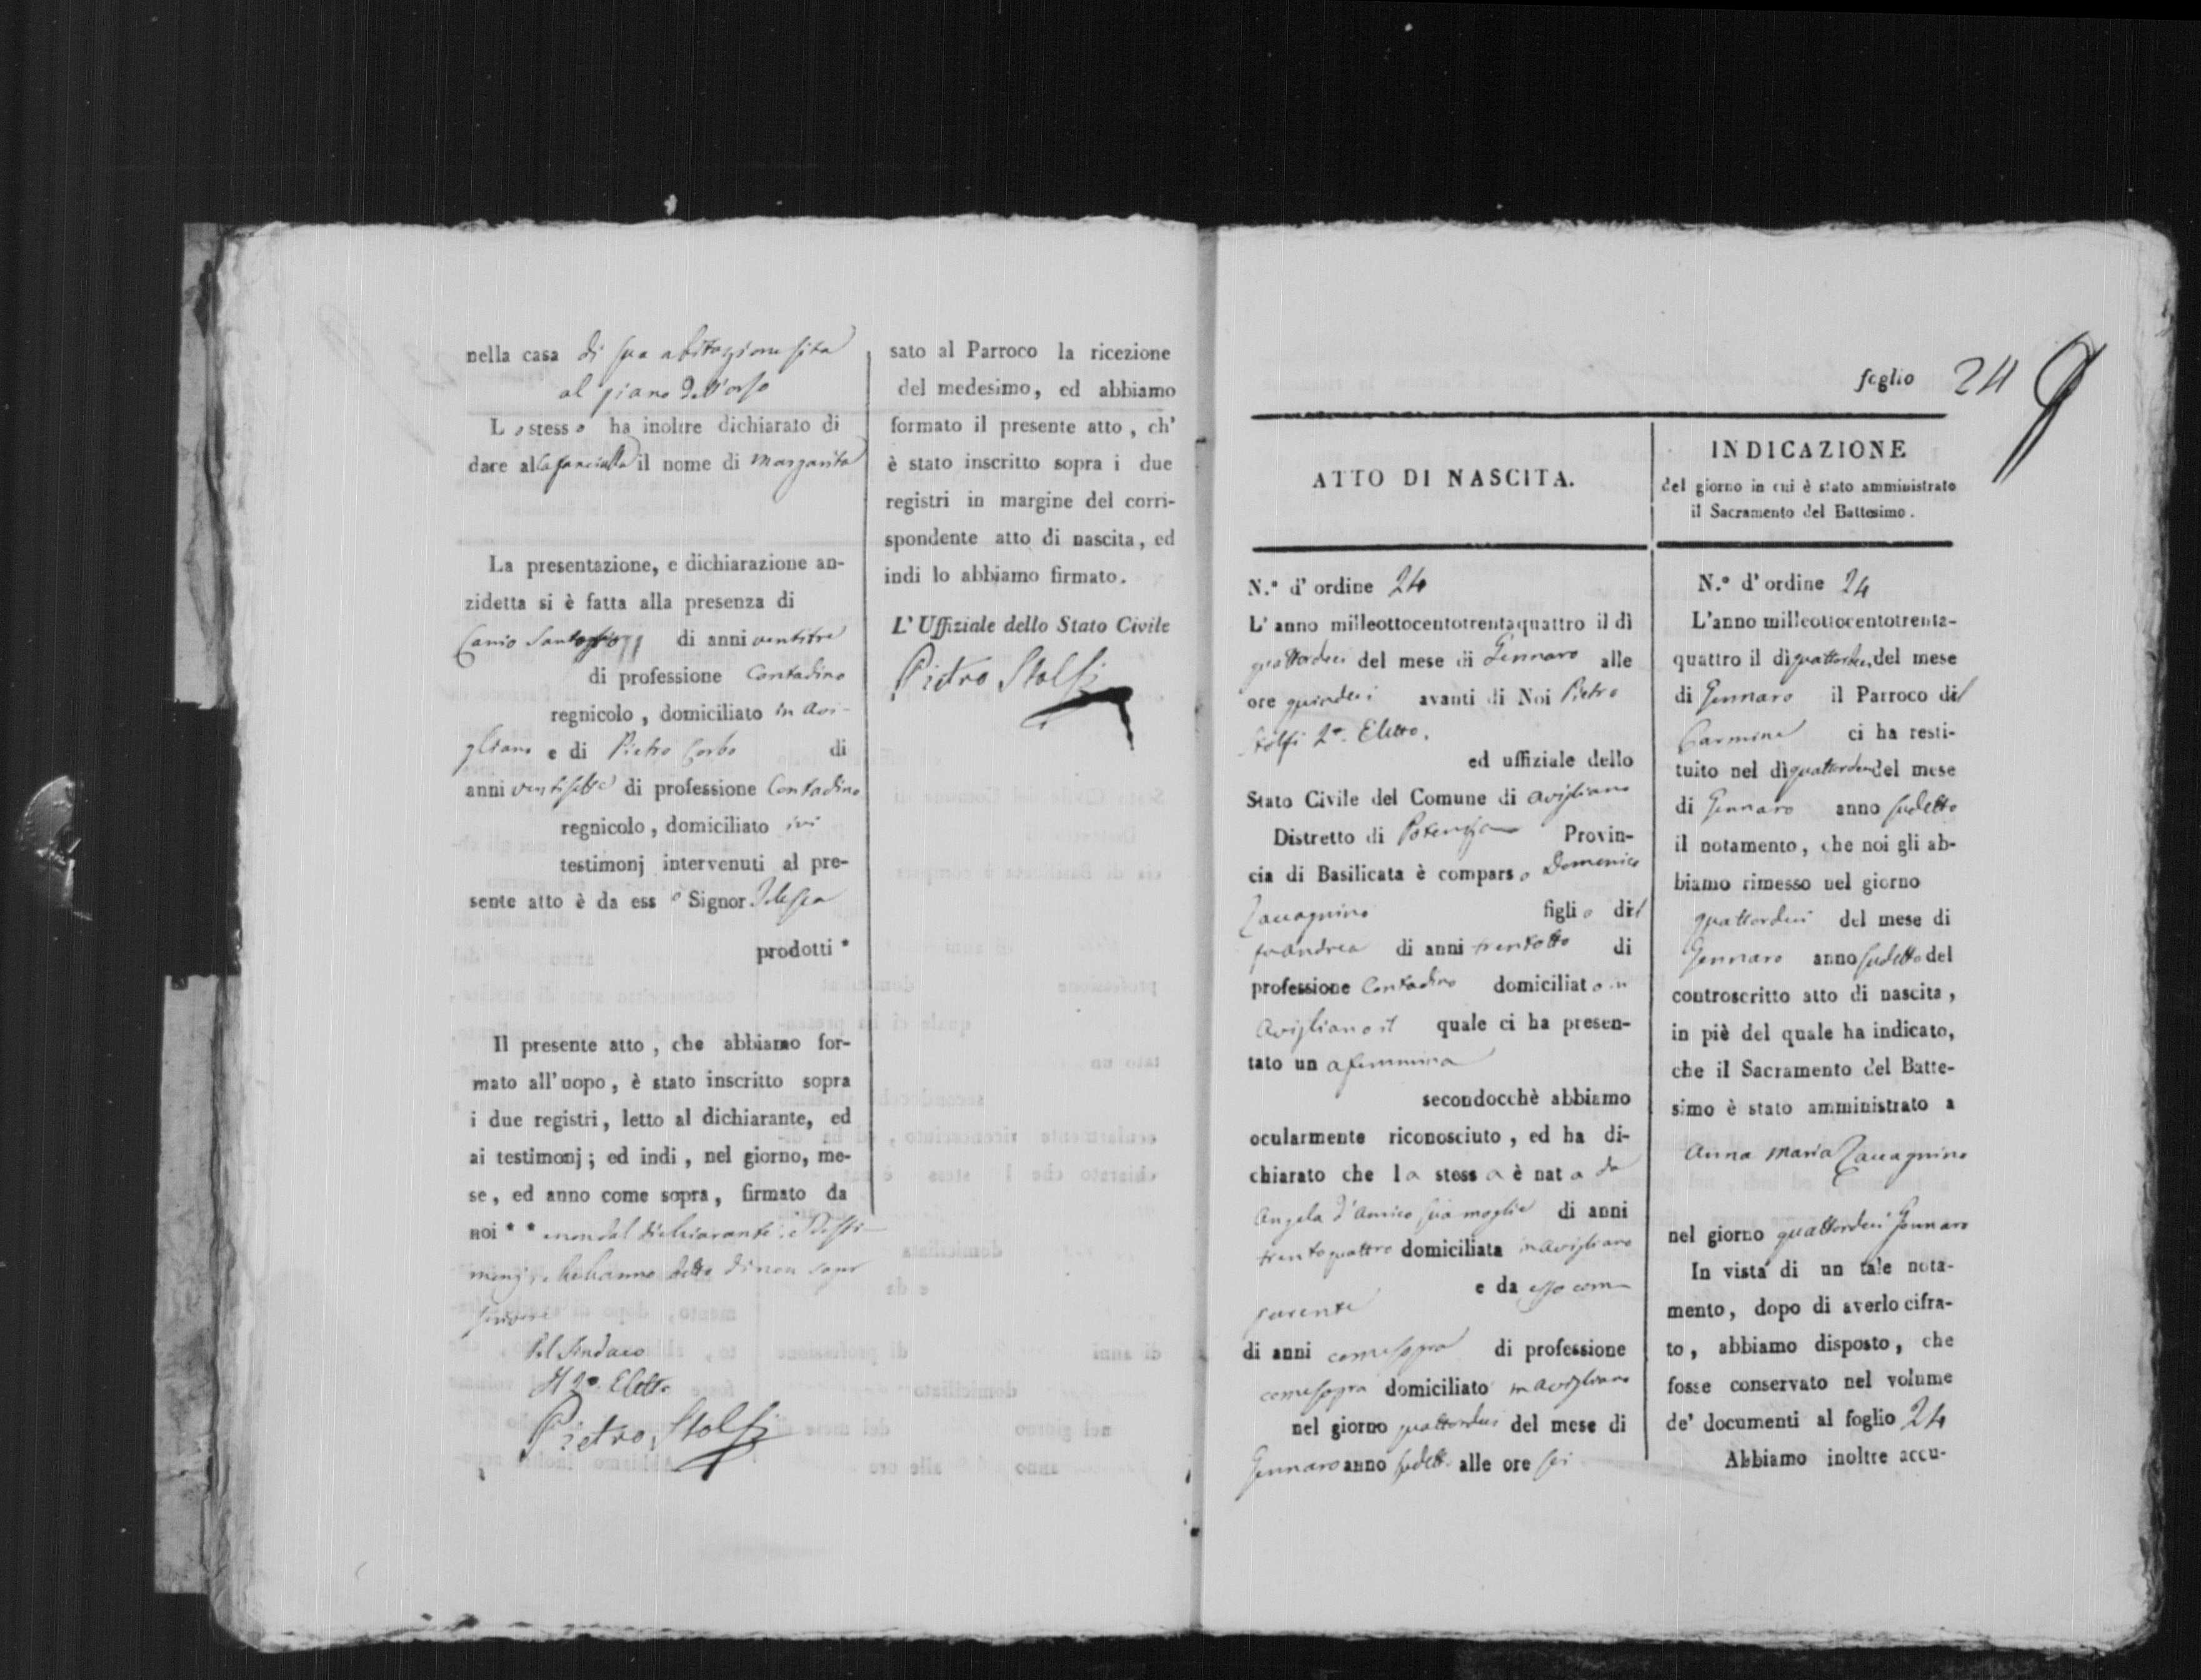 nella casa di sua abitazione sita
al piano dell'orso
Lo stesso ha inoltre dichiarato di
dare alla fanciulla il nome di Margarita
La presentazione, e dichiarazione an-
zidetta si è fatta alla presenza di
Canio di anni ventitre
di professione Contadino
regnicolo, domiciliato in Avi-
gliano e di Pietro Corbo di
anni ventisette di professione Contadino
regnicolo, domiciliato ivi
testimonj intervenuti al pre-
sente atto è da esso Signor
prodotti *
Il presente atto, che abbiamo for-
mato all'uopo, è stato inscritto sopra
i due registri, letto al dichiarante, ed
ai testimonj; ed indi, nel giorno, me-
se, ed anno come sopra, firmato da
noi * * e non dal dichiarante, e testi-
monj, che hanno detto di non saper
scrivere
Pel Sindaco
Il 2º Eletto
Pietro Stolfi
sato al Parroco la ricezione
del medesimo, ed abbiamo
formato il presente atto, ch'
è stato inscritto sopra i due
registri in margine del corri-
spondente atto di nascita, ed
indi lo abbiamo firmato.
L'Uffiziale dello Stato Civile
Pietro Stolfi
foglio 24
ATTO DI NASCITA.
N.º d'ordine 24
L'anno milleottocentotrentaquattro il dì
quattordeci del mese di Gennaro alle
ore quindeci avanti di Noi Pietro
Stolfi 2º Eletto.
ed uffiziale dello
Stato Civile del Comune di Avigliano
Distretto di Potenza Provin-
cia di Basilicata è comparso Domenico
Zaccagnino figlio del
fu Andrea di anni trentotto di
professione Contadino domiciliato in
Avigliano il quale ci ha presen-
tato una femmina
secondocchè abbiamo
ocularmente riconosciuto, ed ha di-
chiarato che la stessa è nata da
Angela d'Amico sua moglie di anni
trentaquattro domiciliata in Avigliano
e da esso com-
parente
di anni come sopra di professione
come sopra domiciliato in Avigliano
nel giorno quattordeci del mese di
Gennaro anno sudetto alle ore sei
INDICAZIONE
del giorno in cui è stato amministrato
il Sacramento del Battesimo.
N.º d'ordine 24
L'anno milleottocentotrenta-
quattro il dì quattordeci del mese
di Gennaro il Parroco del
Carmine ci ha resti-
tuito nel dì quattordeci del mese
di Gennaro anno sudetto
il notamento, che noi gli ab-
biamo rimesso nel giorno
quattordeci del mese di
Gennaro anno sudetto del
controscritto atto di nascita,
in piè del quale ha indicato,
che il Sacramento del Batte-
simo è stato amministrato a
Anna Maria Zaccagnino
nel giorno quattordeci Gennaro
In vista di un tale nota-
mento, dopo di averlo cifra-
to, abbiamo disposto, che
fosse conservato nel volume
de' documenti al foglio 24
Abbiamo inoltre accu-